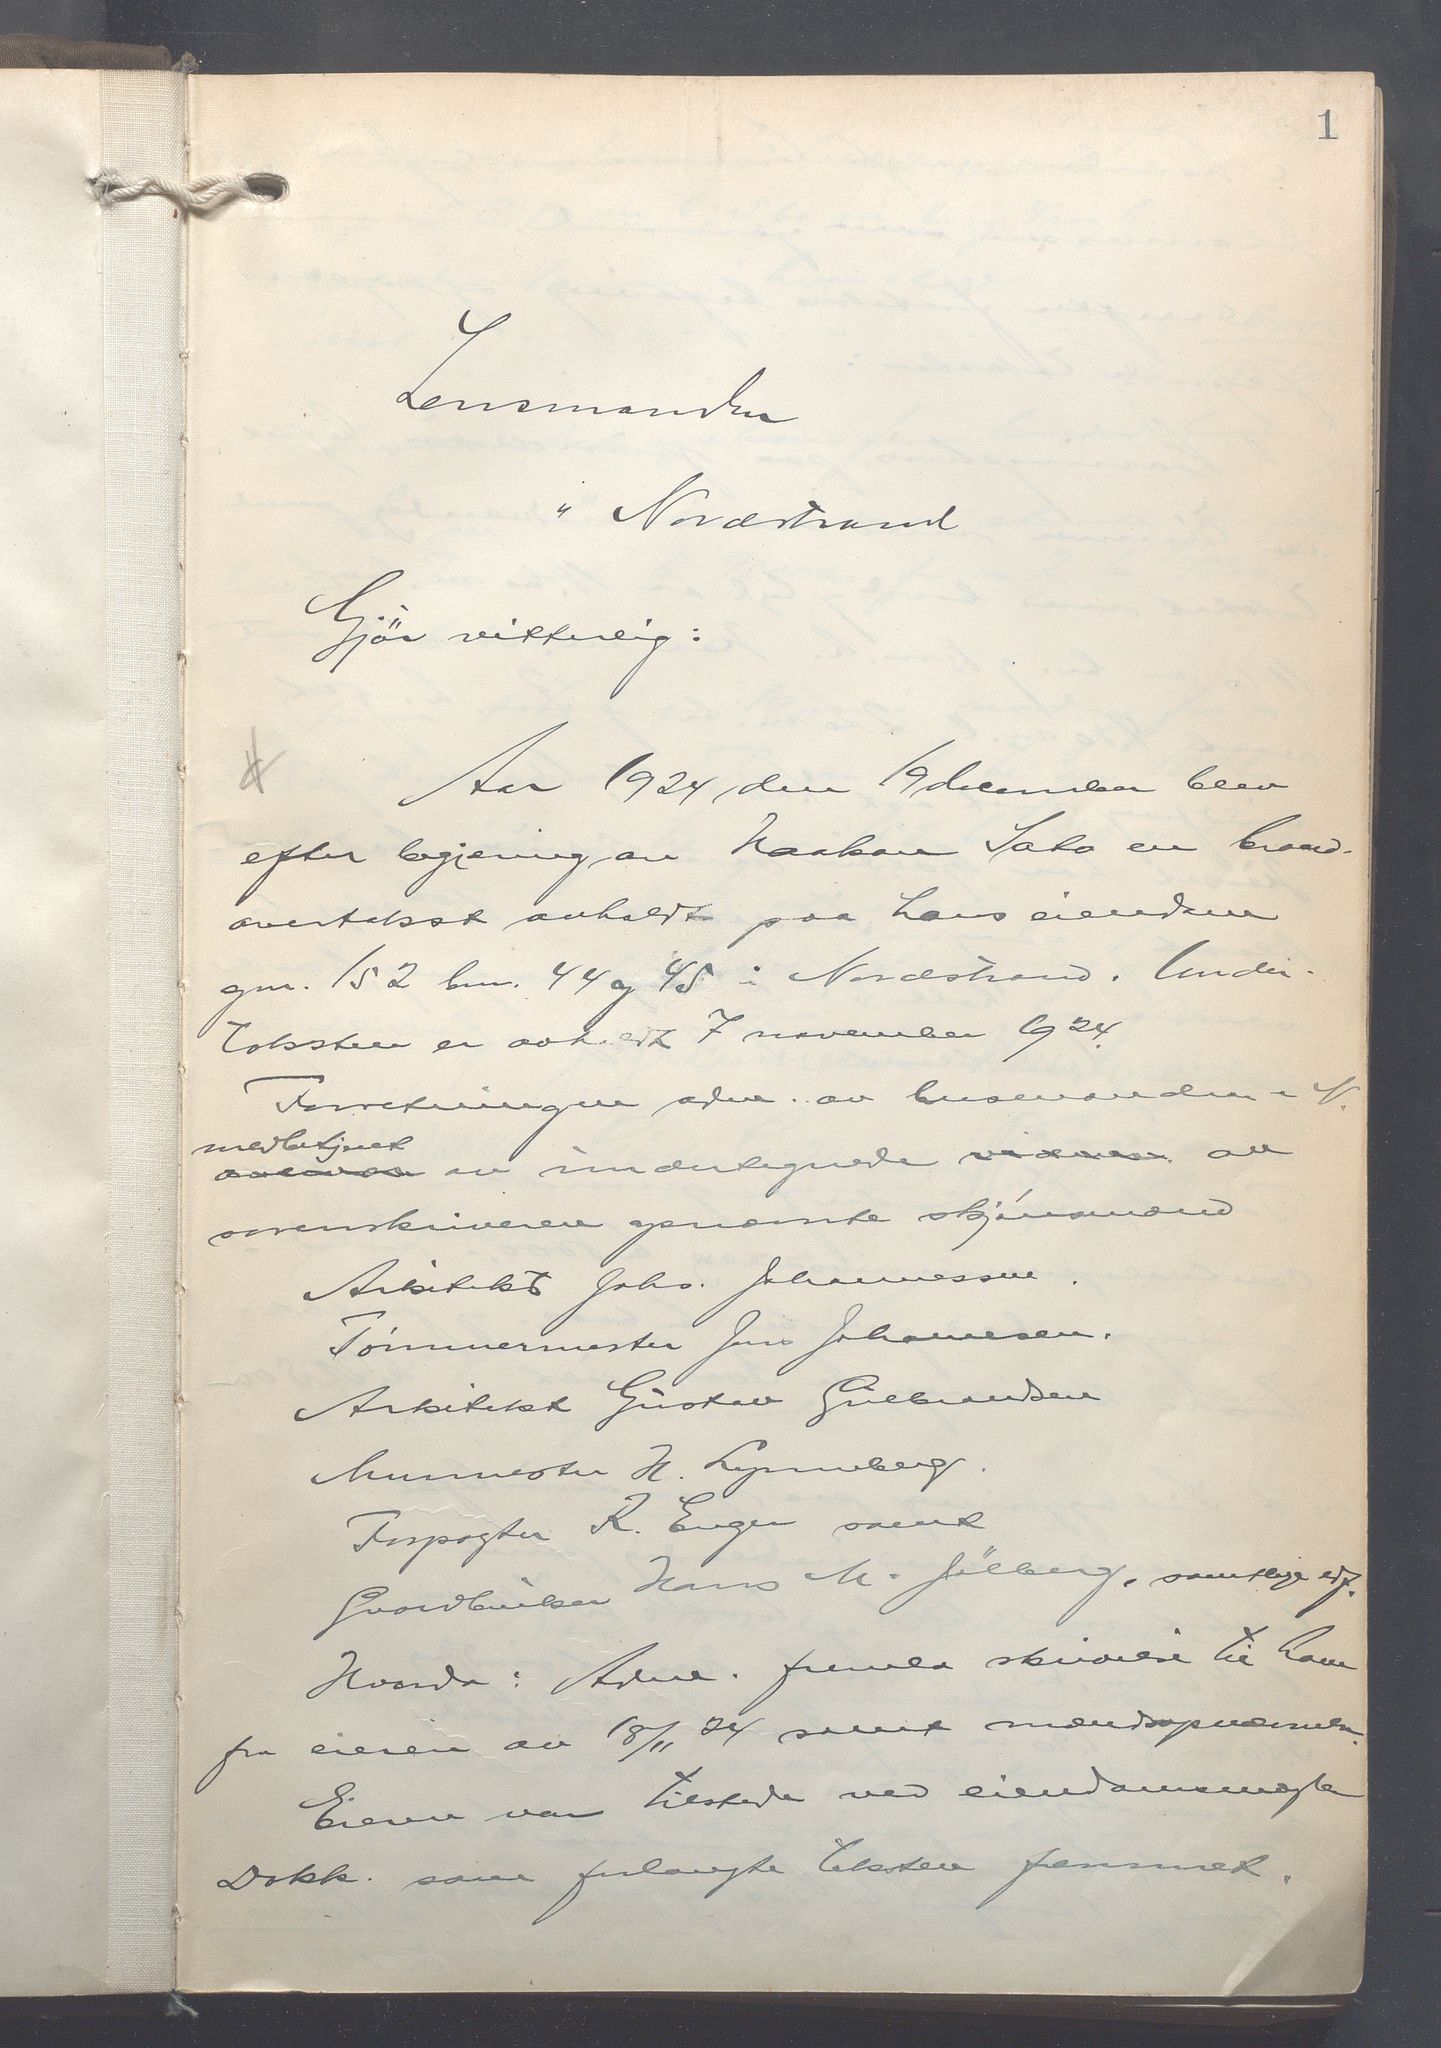 1
Lensmanden
i Nordstrand
Gjör vitterlig:
Aar 1924, den 19 december blev
efter begjæring av Haakon Sato en brand-
overtakst avholdt paa hans eiendom
gnr. 152 bnr. 44 og 45 i Nordstrand. Under-
taksten er avholdt 7 november 1924.
Forretningen adm. av lensmanden i N.
medbetjent
av undertegnede av
sorenskriveren opnævnte skjønsmænd
Arkitekt Johs. Johannessen.
Tømmermester Jens Johannesen.
Arkitekt Gustav Gulbrandsen
Murmester H. Lynneberg.
Forpagter K. Enger samt
Gaardbruker Hans M. Sölberg, samtlige edf.
Hvorda: Adm. fremla skrivelse til ham
fra eieren av 18/11 24 samt mændsopnævnelse.
Eieren var tilstede ved eiendomsmægler
Dokk. som forlangte taksten fremmet.